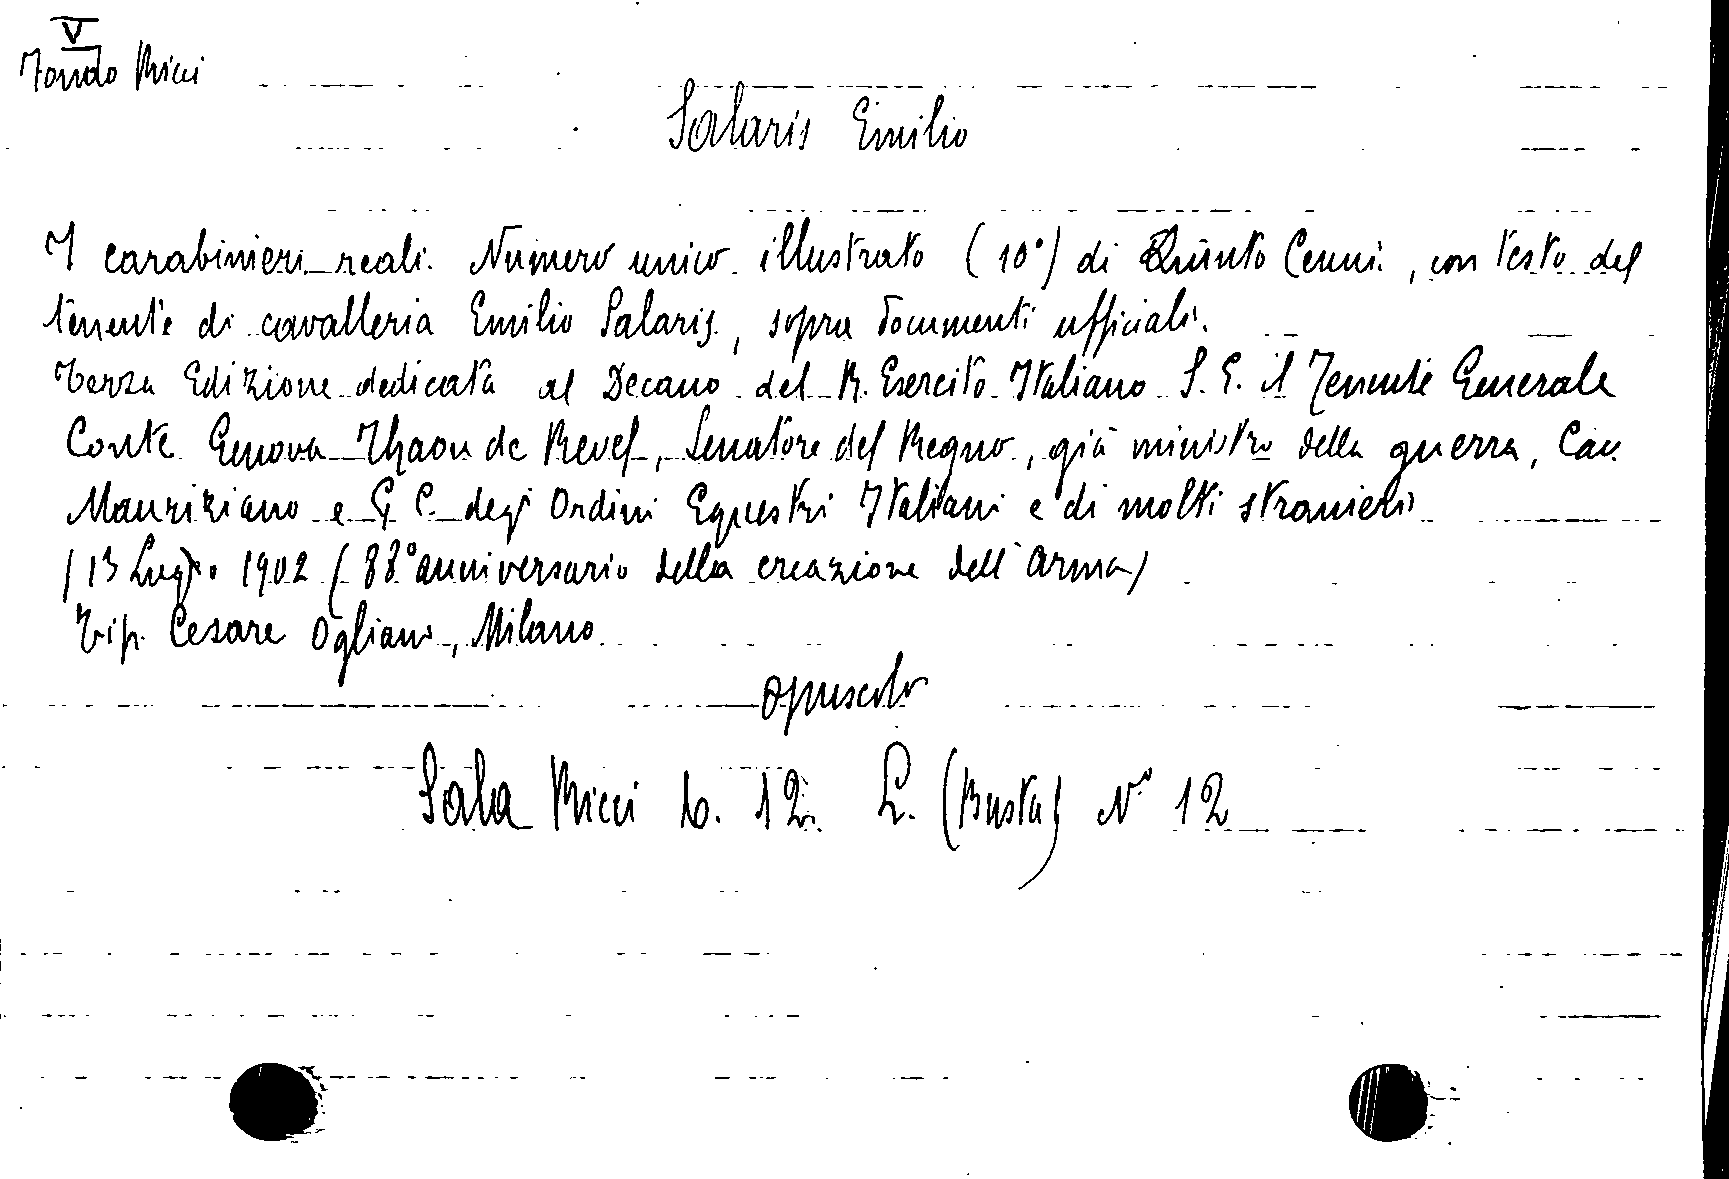 V
Fondo Ricci
Salaris Emilio
I carabinieri reali. Numero unico illustrato (10°) di Quinto Cenni, con testo del
tenente di cavalleria Emilio Salaris, sopra documenti ufficiali.
Terza Edizione dedicata al Decano del R. Esercito Italiano S. E. il Tenente Generale
Conte Genova Thaon de Revel, Senatore del Regno, già ministro della guerra, Cav.
Mauriziano e G. C. degl Ordini Equestri Italiani e di molti stranieri
(13 Luglio 1902 (88° anniversario della creazione dell'arma)
Tip. Cesare Ogliani, Milano
opuscolo
Sala Ricci b. 12. L. (Busta) N° 12